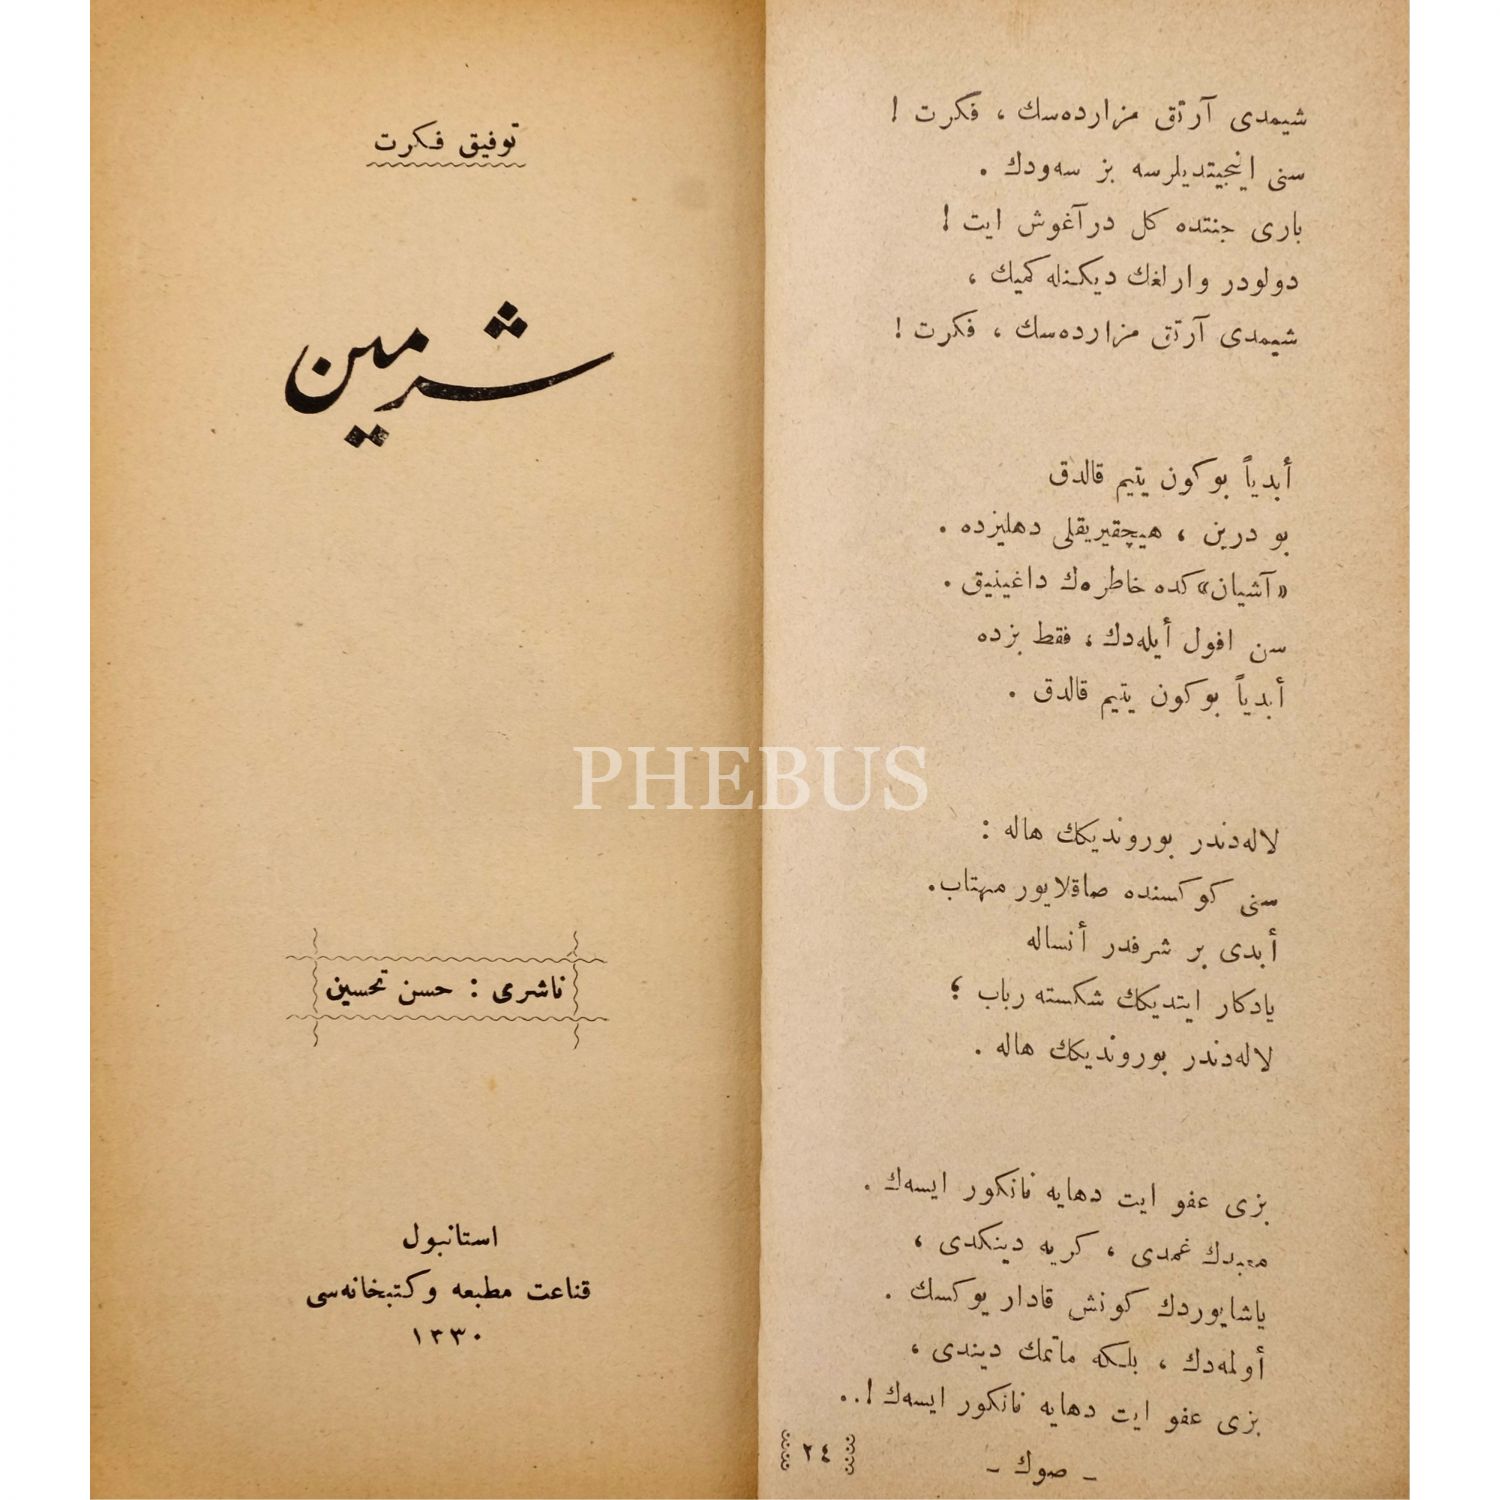 توفيق فكرت
شرمين
ناشرى : حسن تحسين
استانبول
قناعت مطبعه وكتبخانه‌سى
١٣٣٠
شيمدى آرتق مزارده‌سك ، فكرت !
سنى اينجيتديلرسه بز سه‌ودك .
بارى جنتده كل درآغوش ايت !
دولودر وارلغك ديكنله كميك ،
شيمدى آرتق مزارده‌سك ، فكرت !
أبدياً بوكون يتيم قالدق
بو درين ، هيچقيريقلى دهليزده .
«آشيان» كده خاطره‌ك داغينيق .
سن افول أيله‌دك ، فقط بزده
أبدياً بوكون يتيم قالدق .
لاله‌دندر بوروندیكك هاله :
سنى كوكسنده صاقلايور مهتاب .
أبدى بر شرفدر أنساله
يادكار ايتديكك شكسته رباب ؛
لاله‌دندر بوروندیكك هاله .
بزى عفو ايت دهايه نانكور ايسه‌ك .
معبدك غمدى ، كريه دينكدى ،
ياشايوردك كونش قادار يوكسك .
أولمه‌دك ، بلكه ماتمك ديندى ،
بزى عفو ايت دهايه نانكور ايسه‌ك !..
- صوك -
٢٤
PHEBUS